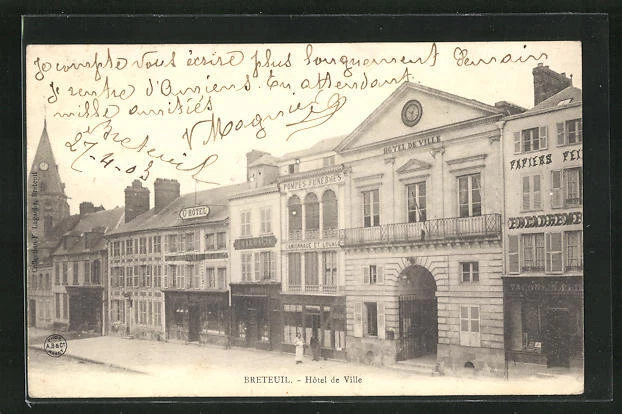 Je compte vous écrire plus longuement demain
je rentre d'Amiens. En attendant
mille amitiés
Breteuil
27-4-03
HÔTEL DE VILLE
PAPIERS PEI
POMPES FUNÈBRES
HÔTEL
CAMIONNAGE ET LOUAGE
ENCADREMENTS
Collection F.
Breteuil
BRETEUIL. - Hôtel de Ville